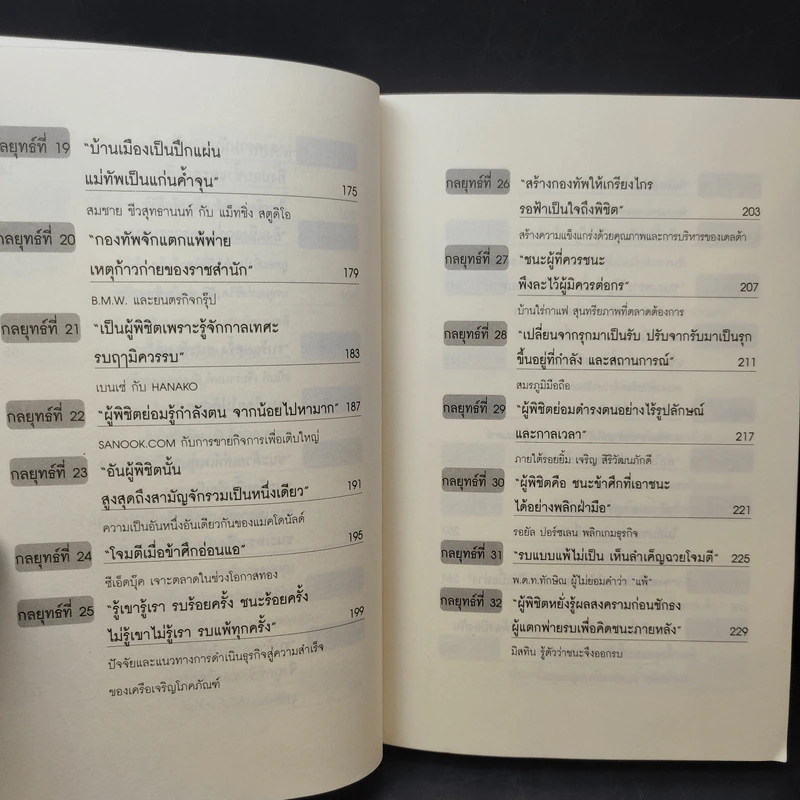 กลยุทธ์ที่ 19 "บ้านเมืองเป็นปึกแผ่น
แม่ทัพเป็นแก่นค้ำจุน" 175
สมชาย ชีวสุทธานนท์ กับ แม็ทชิ่ง สตูดิโอ
กลยุทธ์ที่ 20 "กองทัพจักแตกแพ้พ่าย
เหตุก้าวก่ายของราชสำนัก" 179
B.M.W. และยนตรกิจกรุ๊ป
กลยุทธ์ที่ 21 "เป็นผู้พิชิตเพราะรู้จักกาลเทศะ
รบฤๅมิควรรบ" 183
เบนเซ่ กับ HANAKO
กลยุทธ์ที่ 22 "ผู้พิชิตย่อมรู้กำลังตน จากน้อยไปหามาก" 187
SANOOK.COM กับการขายกิจการเพื่อเติบใหญ่
กลยุทธ์ที่ 23 "อันผู้พิชิตนั้น
สูงสุดถึงสามัญจักรวมเป็นหนึ่งเดียว" 191
ความเป็นอันหนึ่งอันเดียวกันของแมคโดนัลด์
กลยุทธ์ที่ 24 "โจมตีเมื่อข้าศึกอ่อนแอ" 195
ซีเอ็ดบุ๊ค เจาะตลาดในช่วงโอกาสทอง
กลยุทธ์ที่ 25 "รู้เขารู้เรา รบร้อยครั้ง ชนะร้อยครั้ง
ไม่รู้เขาไม่รู้เรา รบแพ้ทุกครั้ง" 199
ปัจจัยและแนวทางการดำเนินธุรกิจสู่ความสำเร็จ
ของเครือเจริญโภคภัณฑ์
กลยุทธ์ที่ 26 "สร้างกองทัพให้เกรียงไกร
รอฟ้าเป็นใจถึงพิชิต" 203
สร้างความแข็งแกร่งด้วยคุณภาพและการบริหารของเดลต้า
กลยุทธ์ที่ 27 "ชนะผู้ที่ควรชนะ
พึงละไว้ผู้มิควรต่อกร" 207
บ้านไร่กาแฟ สุนทรียภาพที่ตลาดต้องการ
กลยุทธ์ที่ 28 "เปลี่ยนจากรุกมาเป็นรับ ปรับจากรับมาเป็นรุก
ขึ้นอยู่ที่กำลัง และสถานการณ์" 211
สมรภูมิมือถือ
กลยุทธ์ที่ 29 "ผู้พิชิตย่อมดำรงตนอย่างไร้รูปลักษณ์
และกาลเวลา" 217
ภายใต้รอยยิ้ม เจริญ สิริวัฒนภักดี
กลยุทธ์ที่ 30 "ผู้พิชิตคือ ชนะข้าศึกที่เอาชนะ
ได้อย่างพลิกฝ่ามือ" 221
รอยัล ปอร์ซเลน พลิกเกมธุรกิจ
กลยุทธ์ที่ 31 "รบแบบแพ้ไม่เป็น เห็นลำเค็ญฉวยโจมตี" 225
พ.ต.ท.ทักษิณ ผู้ไม่ยอมคำว่า "แพ้"
กลยุทธ์ที่ 32 "ผู้พิชิตหยั่งรู้ผลสงครามก่อนชักธง
ผู้แตกพ่ายรบเพื่อคิดชนะภายหลัง" 229
มิสทิน รู้ตัวว่าชนะจึงออกรบ